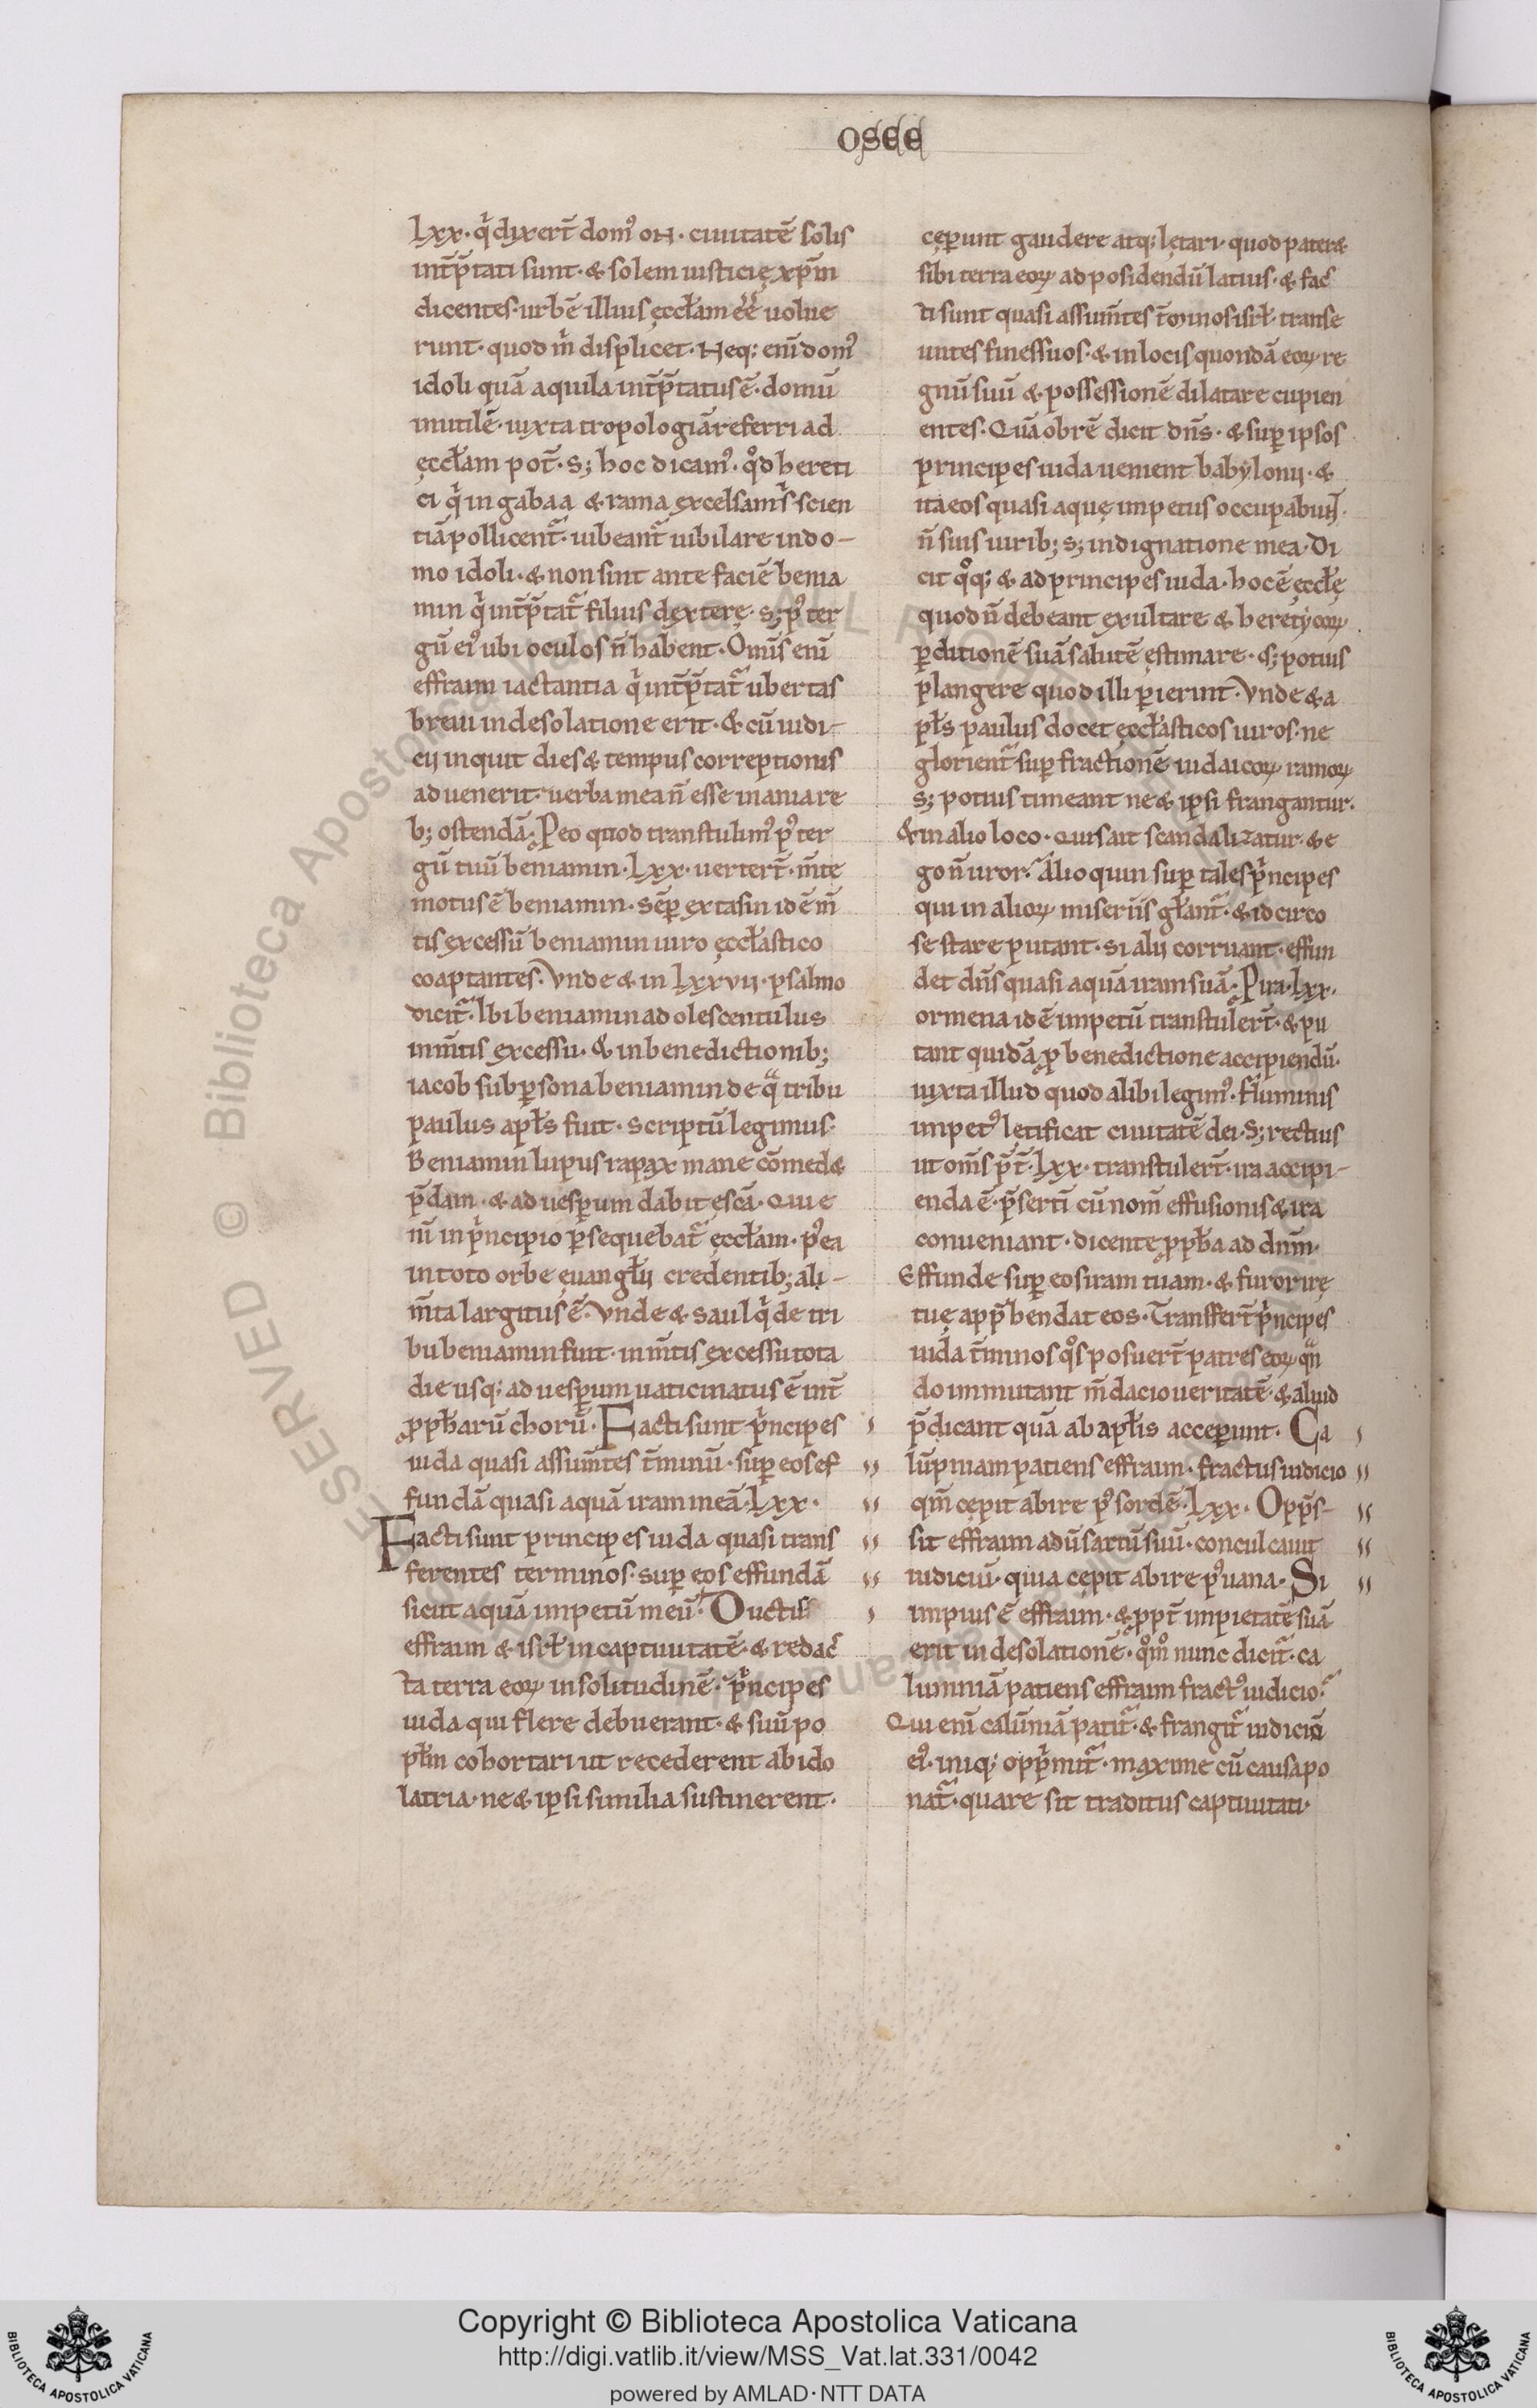 OSEE
Lxx· q̇ dixert̄ dom᷒ oн· ciuitatē solis
int̄p̄tati sunt· & solem iusticię xp̄m
dicentes· urbē illius ęccłam eē uolue
runt· quod ṁ displicet· Neq; eni dom᷒
idoli quā aquila int̄p̄tatus ē· domū
inutilē· iuxta tropologiā referri ad
ęccłam pot̄· s; hoc dicam᷒· qd̊ hereti
ci q̇ in gabaa & rama excelsam ṡ scien
tiā pollicent᷑· iubeant᷑ iubilare in do-
mo idoli· & non sint ante faciē benia
min q̇ int̄p̄tat᷑ filius dexterę· s; p᷒ ter
gū ei᷒ ubi oculos n̄ habent· Omīs enī
effraim iactantia q̇ int̄p̄tat᷑ ubertas
breui in desolatione erit· & cū iudi-
cij inquit dies & tempus correptionis
aduenerit· uerba mea n̄ esse inania re
b; ostendā· Ꝓ eo quod transtulim᷒ p᷒ ter
gū tuū beniamin· Lxx· uertert̄· m̄te
motus ē beniamin· sēꝑ extasin id ē m̄
tis excessū beniamin uiro ęccłastico
coaptantes· Vnde & in Lxxvii· psalmo
dicit᷑· Ibi beniamin adolescentulus
in m̄tis excessu· & in benedictionib;
iacob sub ꝑsona beniamin de qᷓ tribu
paulus apłs fuit· scriptū legimus·
Beniamin lupus rapax mane cōmed&
p̄dam· & ad uesꝑum dabit escā· Qui e
nī in pͥncipio ꝑsequebat᷑ ęccłam· p᷒ea
in toto orbe euangłii credentib; ali-
m̄ta largitus ē· Vnde & saul q̇ de tri
bu beniamin fuit· in m̄tis excessu tota
die usq; ad uesꝑum uaticinatus ē int̄
ꝓph̄arū chorū· Facti sunt pͥncipes
iuda quasi assum̄tes t̄minū· suꝑ eos ef
fundā quasi aquā iram meā· Lxx·
Facti sunt principes iuda quasi trans
ferentes terminos· suꝑ eos effundā
sicut aquā impetū meū· Ductis
effraim & isrł in captiuitatē· & redac
ta terra eoꝝ in solitudinē· pͥncipes
iuda qui flere debuerant· & suū po
płm cohortari ut recederent ab ido
latria· ne & ipsi similia sustinerent·
cęꝑunt gaudere atq; lętari· quod pater&
sibi terra eoꝝ ad posidendū latius· & fac
ti sunt quasi assum̄tes t̄minos isrł· transe
untes fines suos· & in locis quondā eoꝝ re
gnū suū & possessionē dilatare cupien
entes· Quā obrē dicit dn̄s· & suꝑ ipsos
principes iuda uenient babylonij· &
ita eos quasi aquę impetus occupabunt·
n̄ suis uirib; s; indignatione mea· Di
cit qͦq; & ad principes iuda· hoc ē ęccłę
quod n̄ debeant exultare & heretycoꝝ
ꝑditionē suā salutē ęstimare· s; potius
plangere quod illi ꝑierint· Vnde & a
płs paulus docet ęccłasticos uiros· ne
glorient᷑ suꝑ fractionē iudaicoꝝ ramoꝝ
s; potius timeant ne & ipsi frangantur·
& in alio loco· Quis ait scandalizatur· & e
go n̄ uror· Alioquin suꝑ tales pͥncipes
qui in alioꝝ miseriis głant᷑· & idcirco
se stare putant· si alij corruant· effun
det dn̄s quasi aquā iram suā· Ꝓ ira· Lxx·
ormena id ē impetū transtulert̄· & pu
tant quidā ꝓ benedictione accipiendū·
iuxta illud quod alibi legim᷒· fluminis
impet᷒ letificat ciuitatē dei· S; rectius
ut om̄s p̄t̄· Lxx· transtulert̄· ira accipi-
enda ē· p̄sertī cū nom̄ effusionis & ira
conueniant· dicente ꝓph̄a ad dnm̄·
Effunde suꝑ eos iram tuam· & furor irę
tuę app̄hendat eos· Transfert̄ pͥncipes
iuda t̄minos qͦs posuert̄ patres eoꝝ qn̄
do immutant m̄dacio ueritatē· & aliud
p̄dicant quā ab apłis acceꝑunt· Ca
lūpniam patiens effraim· fractus iudicio
qm̄ cępit abire p᷒ sordē· Lxx· Opp̄s-
sit effraim adūsariū suū· conculcauit
iudiciū· quia cępit abire p᷒ uana· Si
impius ē effraim· & ꝓpt̄ impietatē suā
erit in desolationē· qͦmͦ nunc dicit᷑· ca
lumniā patiens effraim fract᷒ iudicio·
Qui enī calūniā patit᷑· & frangit᷑ iudiciū
ei᷒· iniq; oppͥmit᷑· maxime cū causa po
nat᷑· quare sit traditus captiuitati·
Copyright © Biblioteca Apostolica Vaticana
http://digi.vatlib.it/view/MSS_Vat.lat.331/0042
powered by AMLAD·NTT DATA